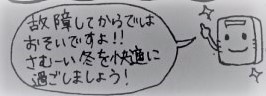 故障してからでは
おそいですよ!!
さむ〜い冬を快適に
過ごしましょう!